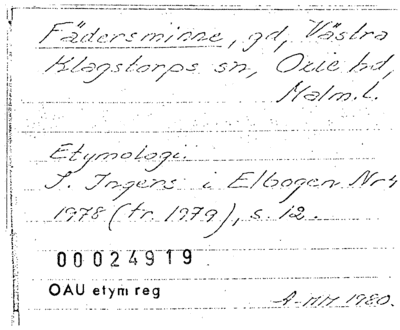 Fädersminne, gd, Västra
Klagstorps sn, Oxie hd,
Malm. l.
Etymologi.
S. Ingers i Elbogen Nr 4
1978 (tr. 1979), s. 12.
00024919
OAU etym reg
A-MM 1980.